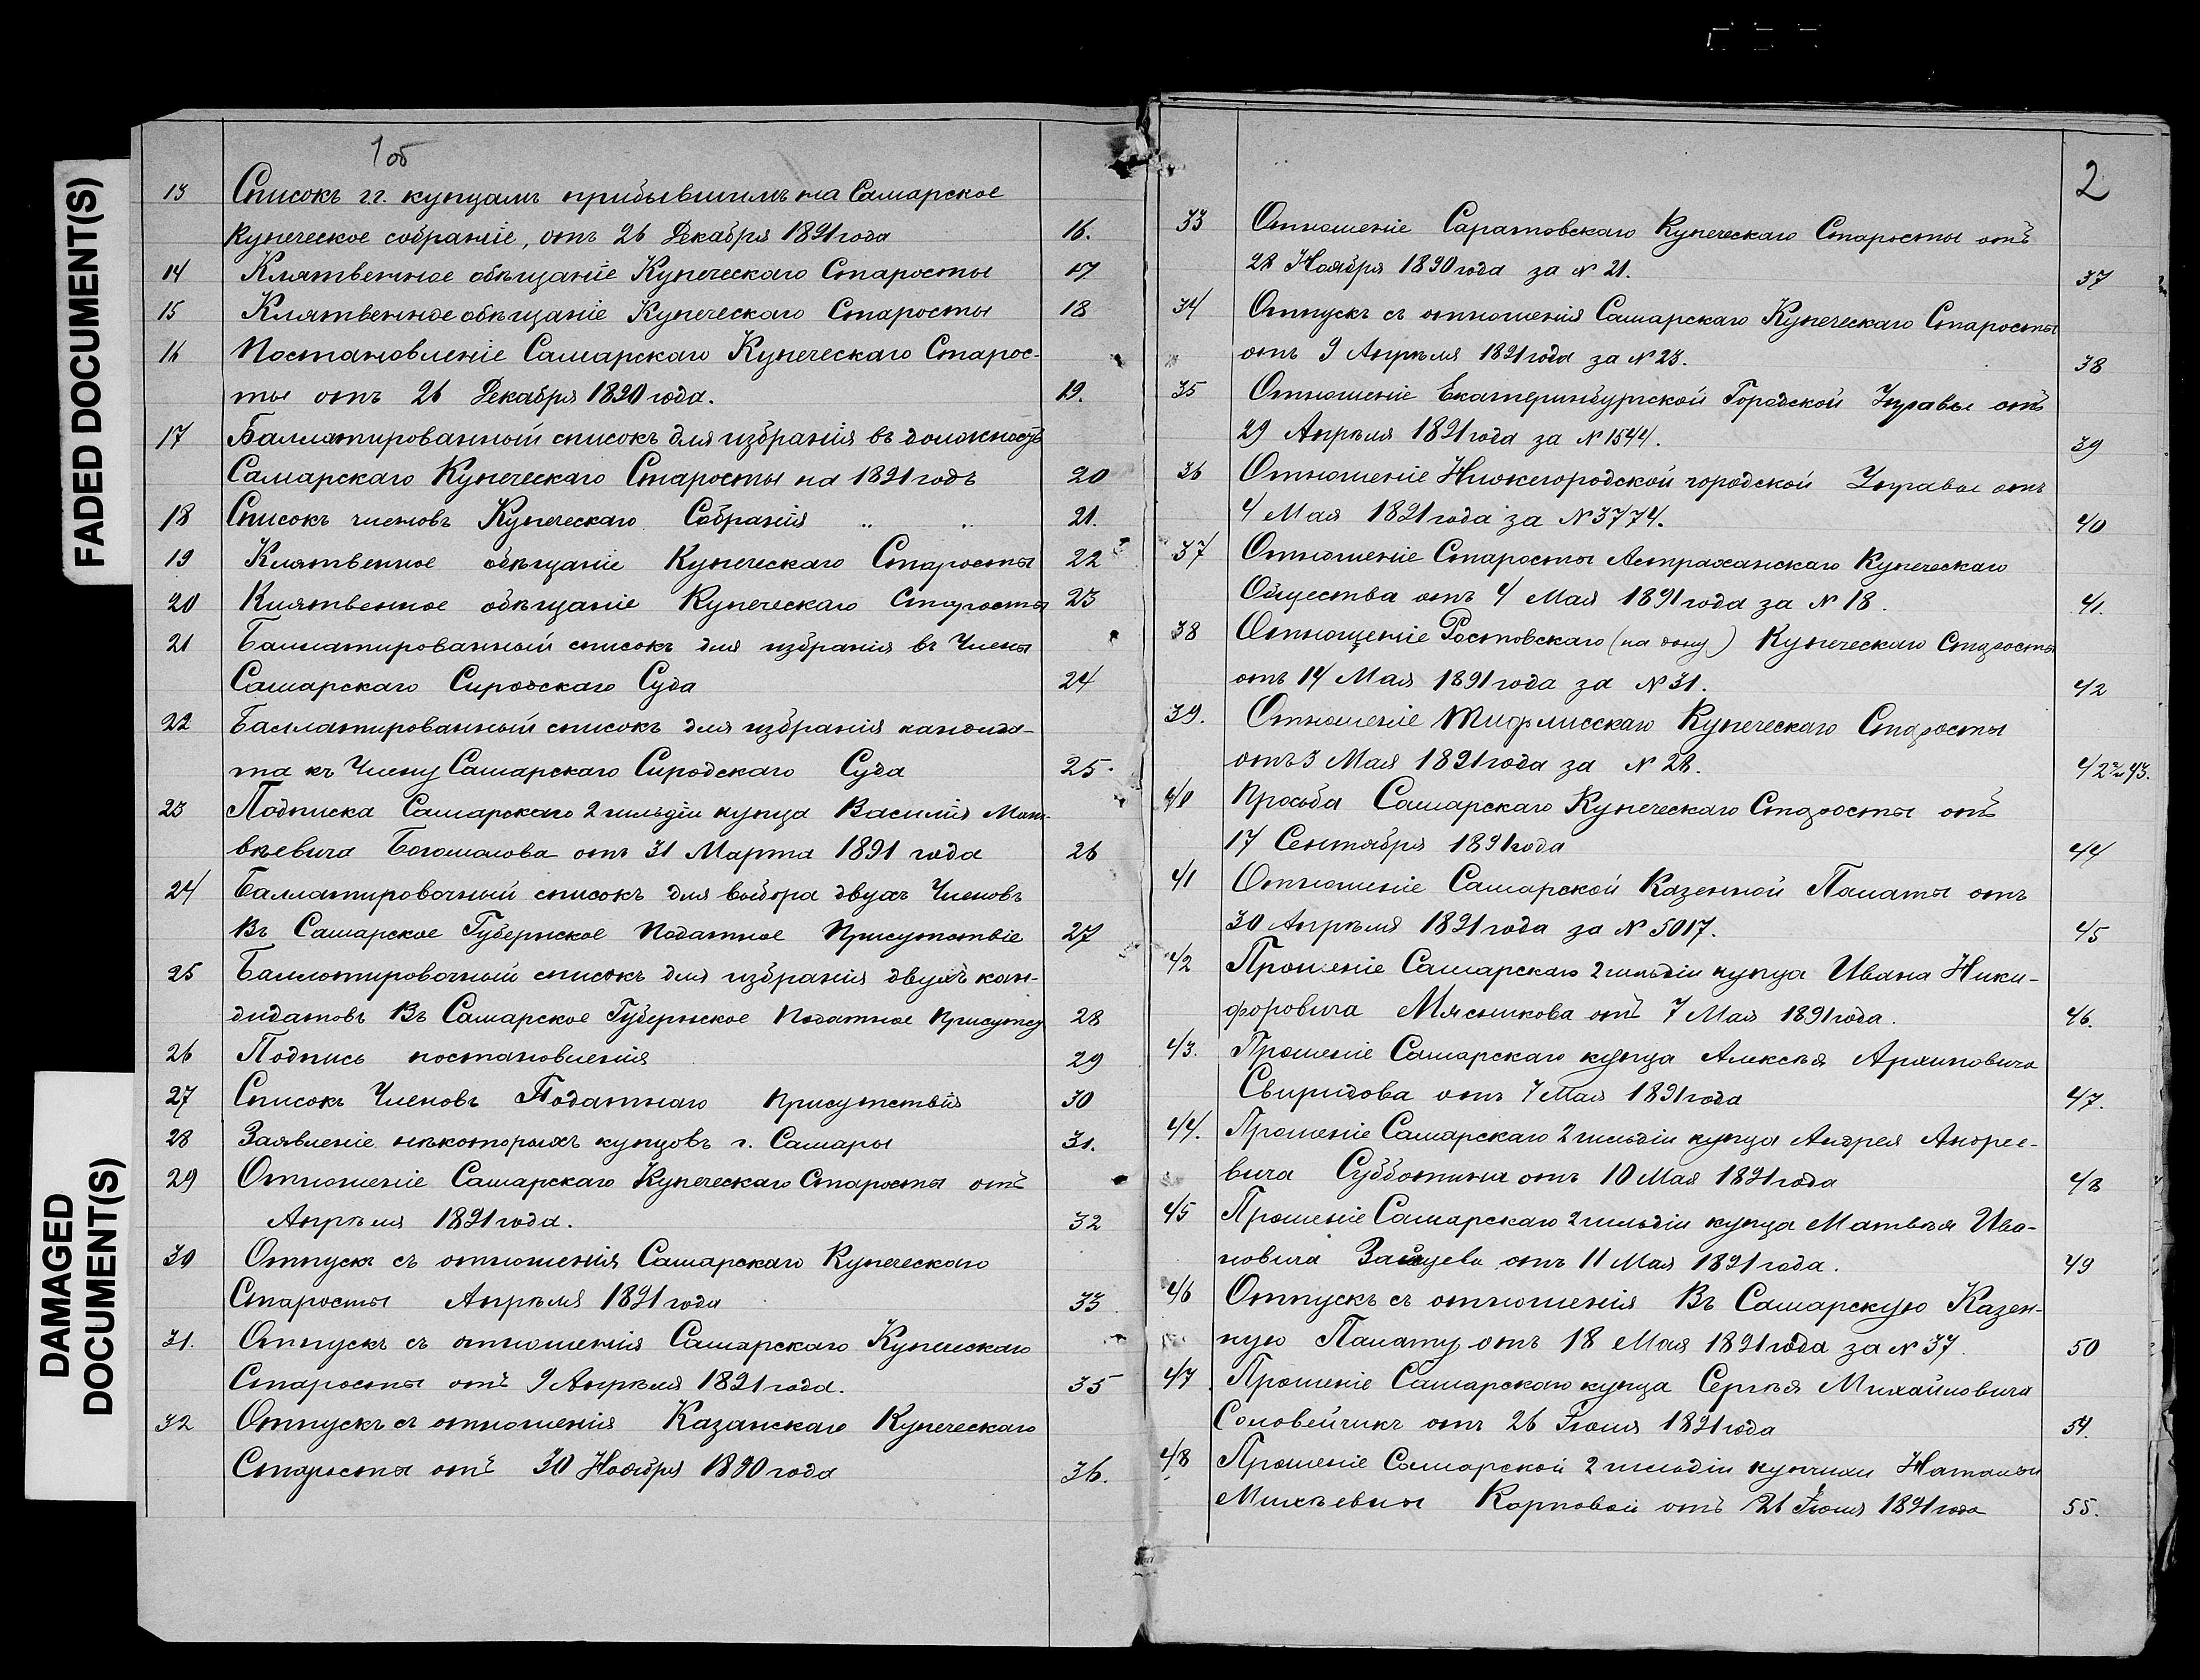 FADED DOCUMENT(S)
DAMAGED
DOCUMENT(S)
1об
13 Списокъ гг. купцамъ прибывшимъ на Самарское
купеческое собраніе, отъ 26 Декабря 1891 года 16.
14 Клятвенное обѣщаніе Купеческаго Старосты 17
15 Клятвенное обѣщаніе Купеческаго Старосты 18
16 Постановленіе Самарскаго Купеческаго Старос-
ты отъ 26 Декабря 1890 года. 19.
17 Баллатированный списокъ для избранія въ должность
Самарскаго Купеческаго Старосты на 1891 годъ 20
18 Списокъ членовъ Купеческаго Собранія „ „ 21.
19 Клятвенное обѣщаніе Купеческаго Старосты 22
20 Клятвенное обѣщаніе Купеческаго Старосты 23
21 Баллатированный списокъ для избранія въ Члены
Самарскаго Сиродскаго Суда 24
22 Баллатированный списокъ для избранія кандида-
та къ Члену Самарскаго Сиродскаго Суда 25.
23 Подписка Самарскаго 2 гильдіи купца Василія Мат-
вѣевича Богомолова отъ 31 Марта 1891 года 26
24 Баллатировочный списокъ для выбора двухъ Членовъ
Въ Самарское Губернское Податное Присутствіе 27
25 Баллотировочный списокъ для избранія двухъ кан-
дидатовъ Въ Самарское Губернское Податное Присутст 28
26 Подпись постановленія 29
27 Списокъ Членовъ Податнаго Присутствія 30
28 Заявленіе нѣкоторыхъ купцовъ г. Самары 31.
29 Отношеніе Самарскаго Купеческаго Старосты отъ
Апрѣля 1891 года. 32
30 Отпускъ съ отношенія Самарскаго Купеческаго
Старосты Апрѣля 1891 года 33
31. Отпускъ съ отношенія Самарскаго Купеческаго
Старосты отъ 9 Апрѣля 1891 года. 35
32 Отпускъ съ отношенія Казанскаго Купеческаго
Старосты отъ 30 Ноября 1890 года 36.
2
33 Отношеніе Саратовскаго Купеческаго Старосты отъ
28 Ноября 1890 года за № 21. 37
34 Отпускъ съ отношенія Самарскаго Купеческаго Старосты
отъ 9 Апрѣля 1891 года за № 23. 38
35 Отношеніе Екатеринбургской Городской Управы отъ
29 Апрѣля 1891 года за № 1544. 39
36 Отношеніе Нижегородской городской Управы отъ
4 Мая 1891 года за № 3774. 40
37 Отношеніе Старосты Астраханскаго Купеческаго
Общества отъ 4 Мая 1891 года за № 18. 41.
38 Отношеніе Ростовскаго (на дону) Купеческаго Старосты
отъ 14 Мая 1891 года за № 31. 42
39. Отношеніе Тифлисскаго Купеческаго Старосты
отъ 3 Мая 1891 года за № 28. 42 43.
40 Просьба Самарскаго Купеческаго Старосты отъ
17 Сентября 1891 года 44
41 Отношеніе Самарской Казенной Палаты отъ
30 Апрѣля 1891 года за № 5017. 45
42 Прошеніе Самарскаго 2 гильдіи купца Ивана Ники-
форовича Мясникова отъ 7 Мая 1891 года. 46.
43. Прошеніе Самарскаго купца Алексѣя Архиповича
Свиридова отъ 7 Мая 1891 года 47.
44. Прошеніе Самарскаго 2 гильдіи купца Андрея Андрее-
вича Субботина отъ 10 Мая 1891 года 48
45 Прошеніе Самарскаго 2 гильдіи купца Матвѣя Ива-
новича Зайцева отъ 11 Мая 1891 года. 49
46 Отпускъ съ отношенія Въ Самарскую Казен-
ную Палату отъ 18 Мая 1891 года за № 37. 50
47. Прошеніе Самарскаго купца Сергѣя Михайловича
Соловейчикъ отъ 26 Іюля 1891 года 54.
48 Прошеніе Самарской 2 гильдіи купчихи Натальи
Михѣевны Карповой отъ 26 Іюля 1891 года 55.